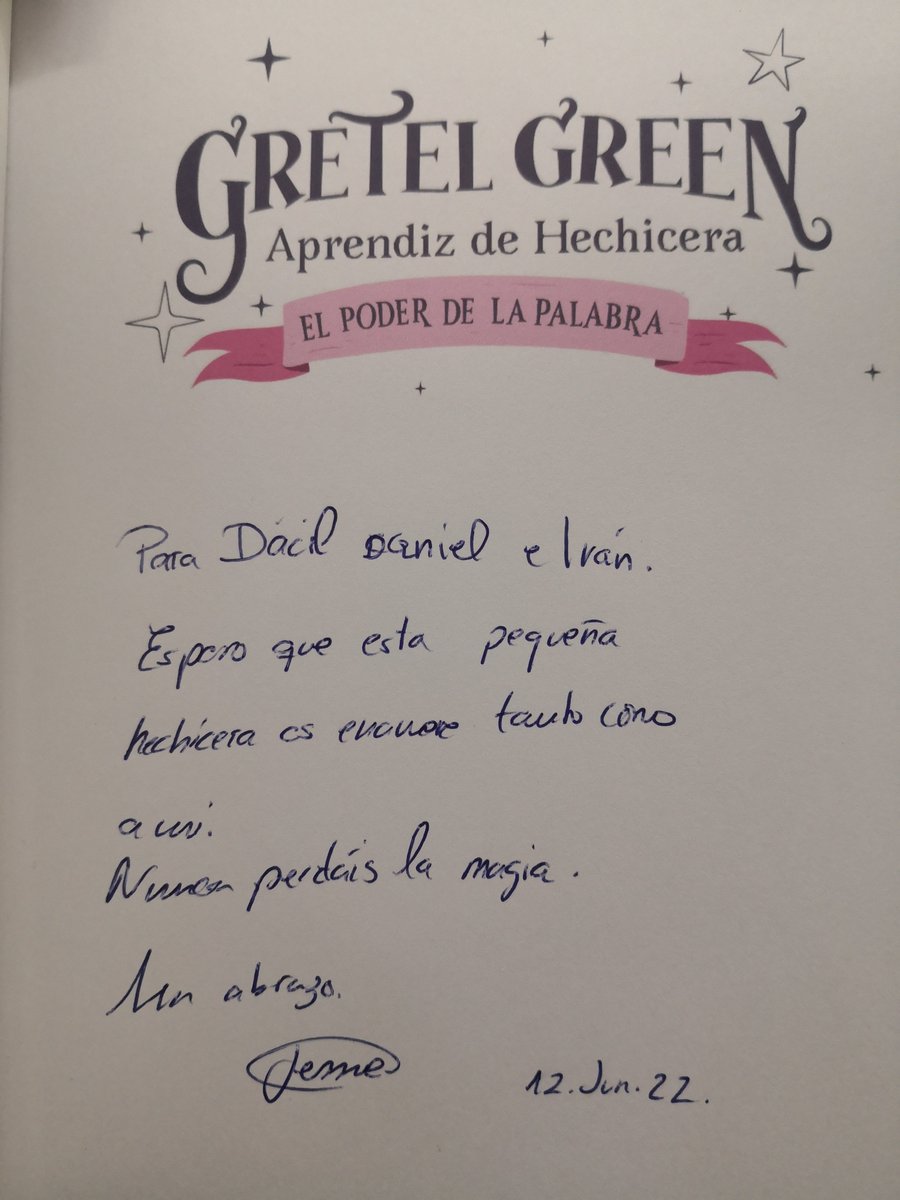 GRETEL GREEN
Aprendiz de Hechicera
EL PODER DE LA PALABRA
Para Dácil Daniel e Iván.
Espero que esta pequeña
hechicera os enamore tanto como
a mí.
Nunca perdáis la magia.
Un abrazo.
12.Jun.22.